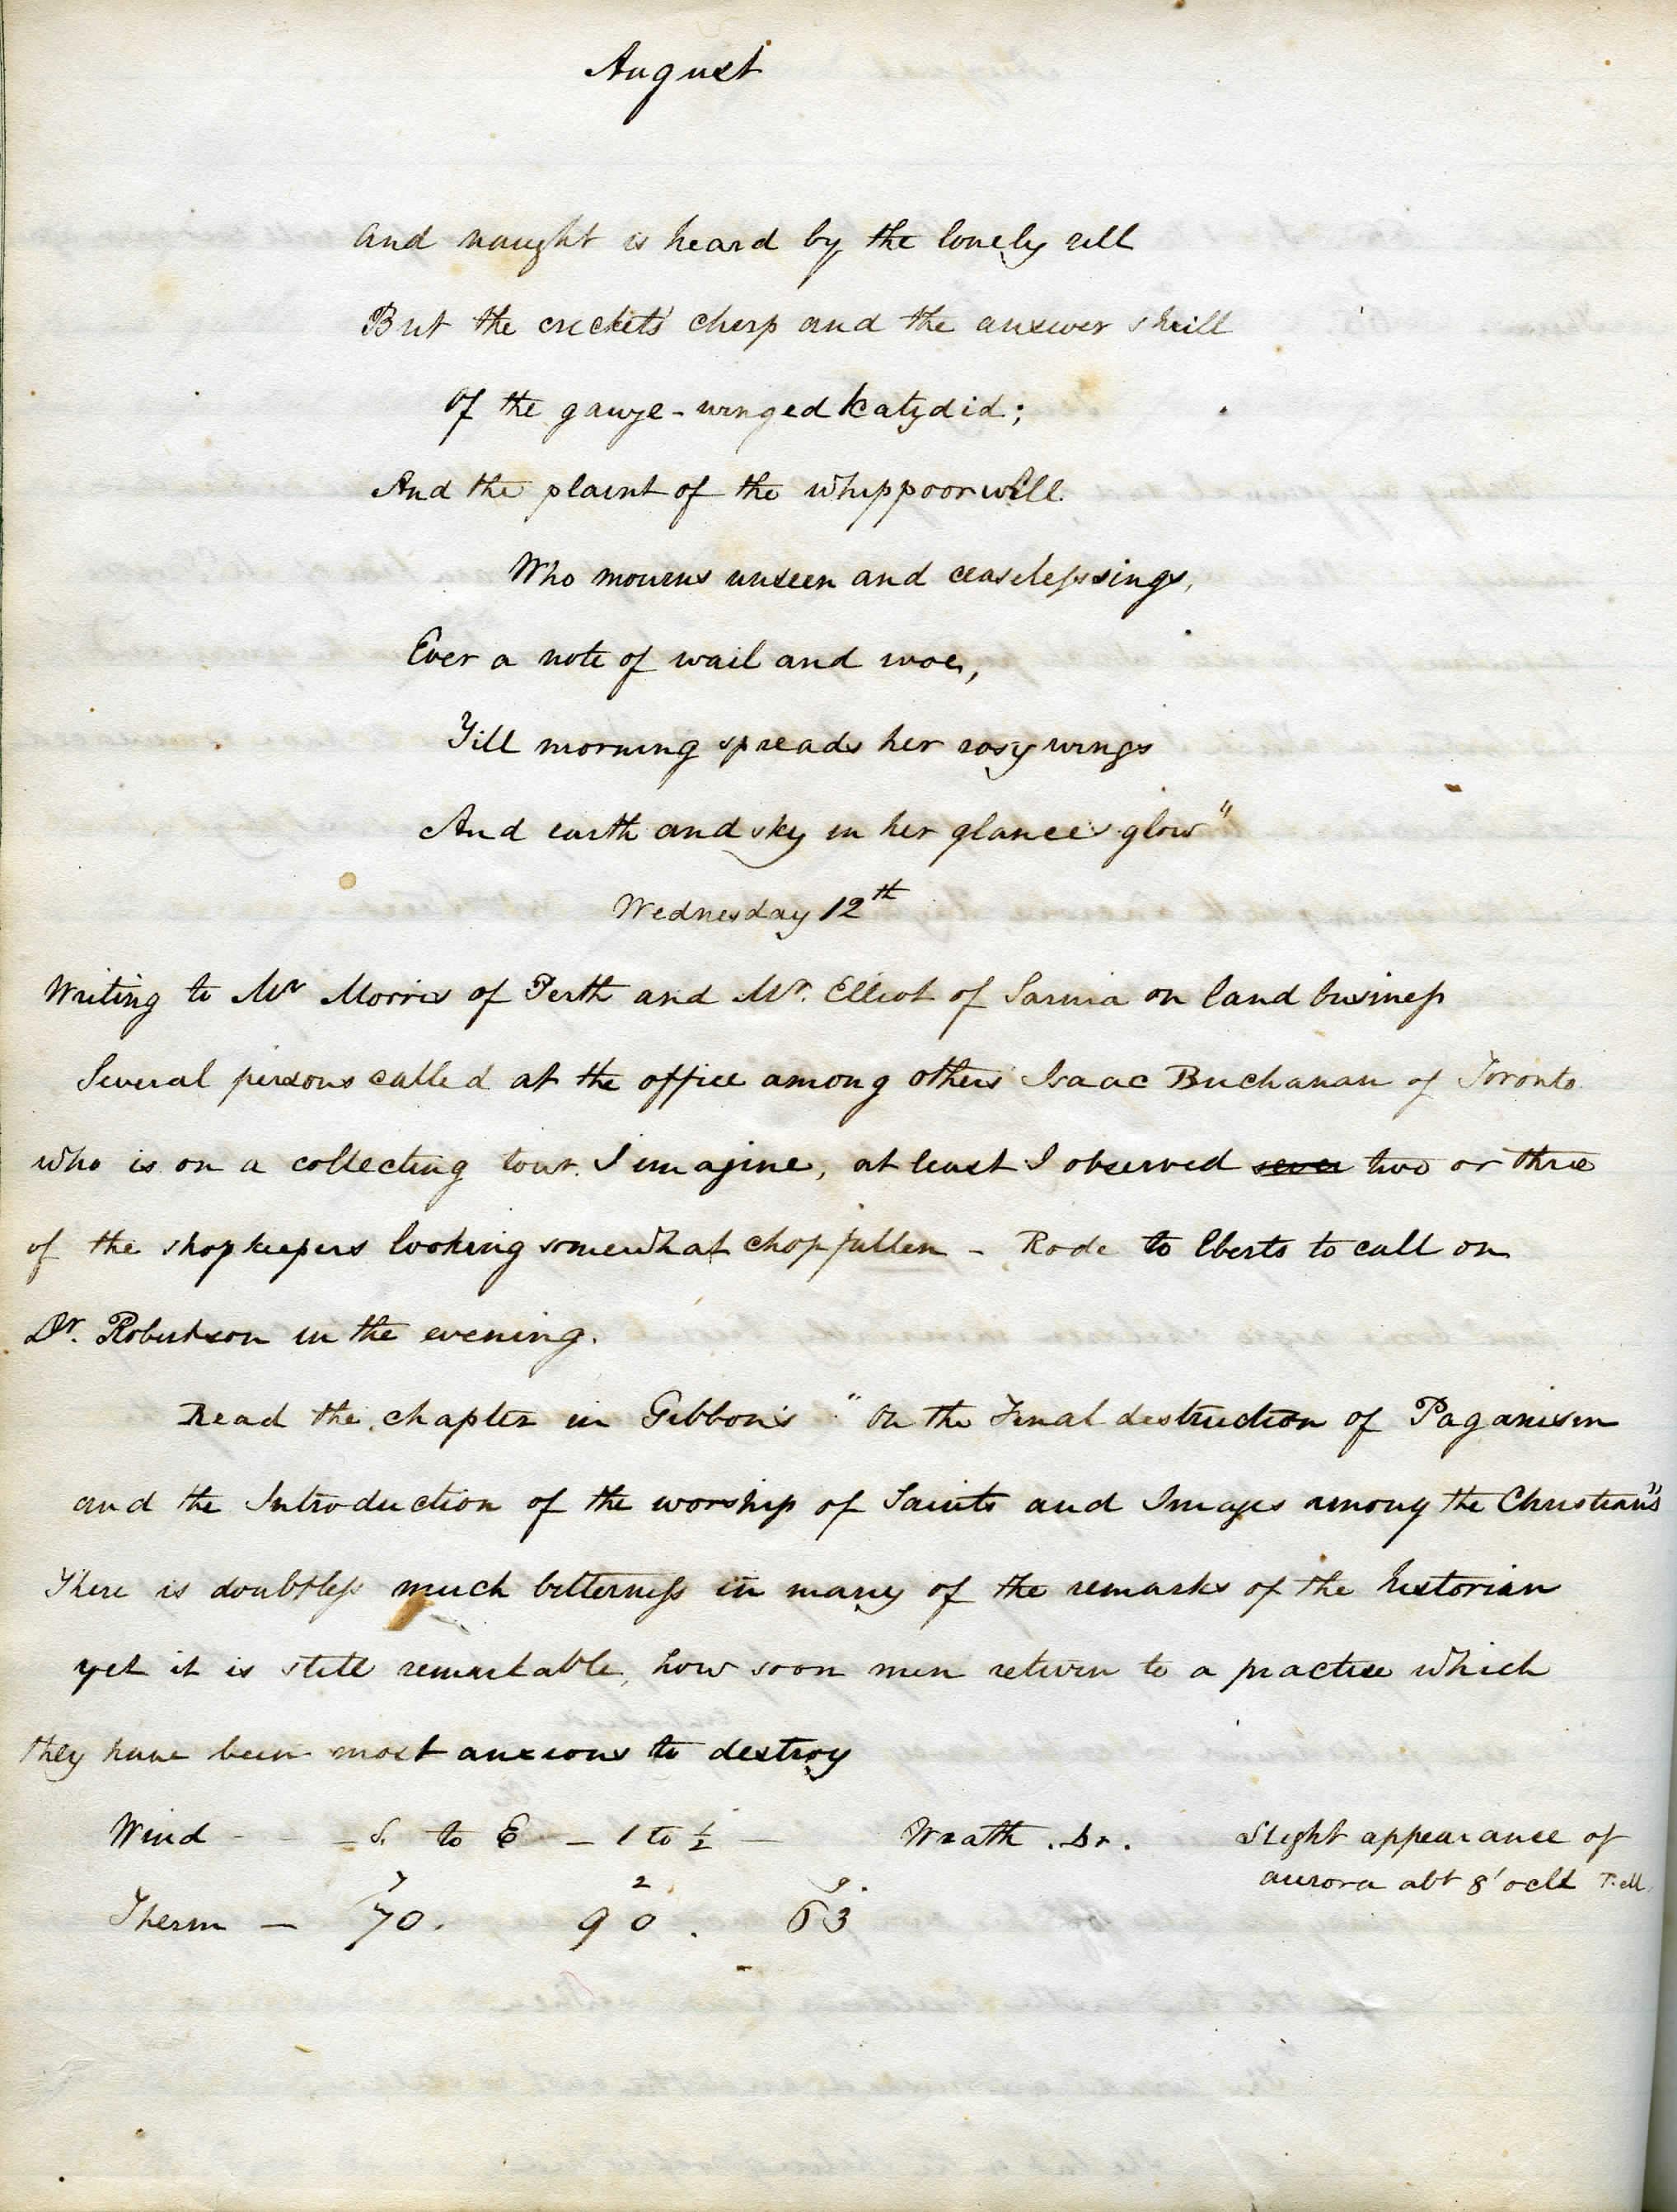 August
And naught is heard by the lonely rill
But the crickets' cherp and the answer shrill
Of the gauze-winged katydid;
And the plaint of the whippoorwill
Who mourns unseen and ceaseless sings,
Ever a note of wail and woe,
Till morning spreads her rosy wings
And earth and sky in her glances glow"
Wednesday 12th
Writing to Mr Morris of Perth and Mr. Elliot of Sarnia on land business
Several persons called at the office among others Isaac Buchanan of Toronto
who is on a collecting tour. I imagine, at least I observed sever two or three
of the shopkeepers looking somewhat chopfallen - Rode to Eberts to call on
Dr. Robertson in the evening.
Read the chapter in Gibbon's "On the Final destruction of Paganism
and the Introduction of the worship of Saints and Images among the Christians"
There is doubtless much bitterness in many of the remarks of the historian
yet it is still remarkable, how soon men return to a practice which
they have been most anxious to destroy
Wind - - - S. to E - 1 to ½ - Weath. Dr. Slight appearance of
aurora abt 8 'oclk
7 2 9.
Therm - 70. 90. 63